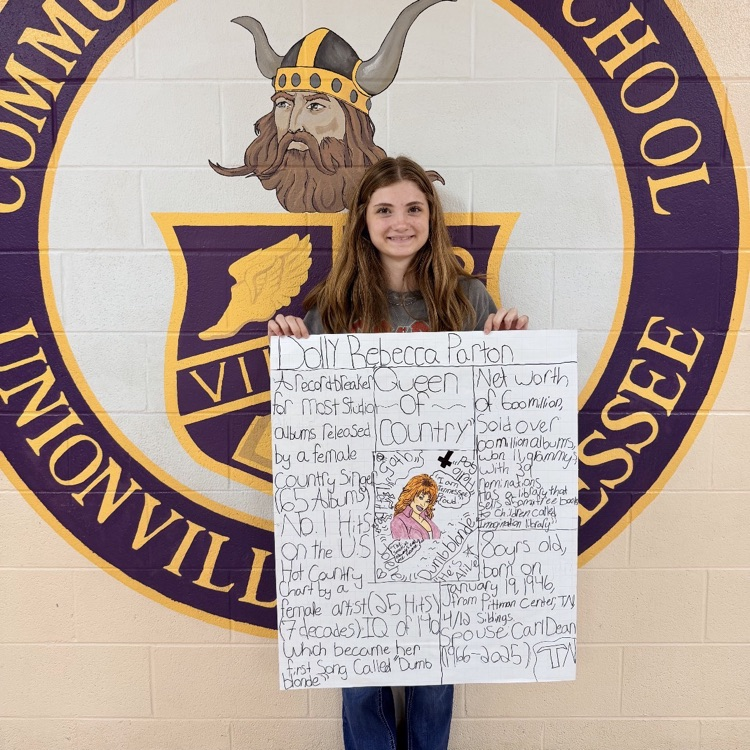 COMMU
SCHOOL
UNIONVILL
ESSEE
VI
Dolly Rebecca Parton
A record breaker
for most studio
albums released
by a female
country singer
(65 Albums)
No. 1 Hits
on the U.S
Hot Country
chart by a
female artist (25 Hits)
(7 decades), IQ of 140
Which became her
first song called "Dumb
blonde"
"Queen
~ OF ~
Country"
"I am
Tennessee
Proud"
"Dumb blonde"
"He's
Alive"
Net worth
of 600 million,
Sold over
100 million albums,
Won 11, grammy's
with 39
nominations,
has a library that
sells sometree books
to children called
"Imagination library"
80yrs old,
born on
January 19, 1946,
from Pittman Center, TN
4/12 Siblings
Spouse: Carl Dean
(1966-2025)
TN